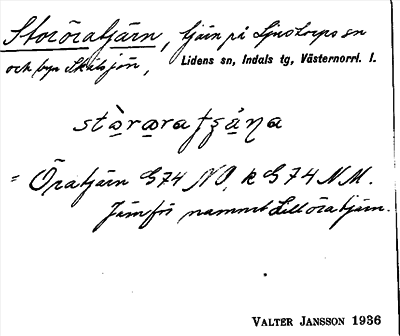 Storöratjärn, tjärn på Ljustorps sn
och byn Skälsjön, Lidens sn, Indals tg, Västernorrl. l.
= Öratjärn G74 NO, k G74 NM.
Jämför namnet Lillöratjärn.
VALTER JANSSON 1936